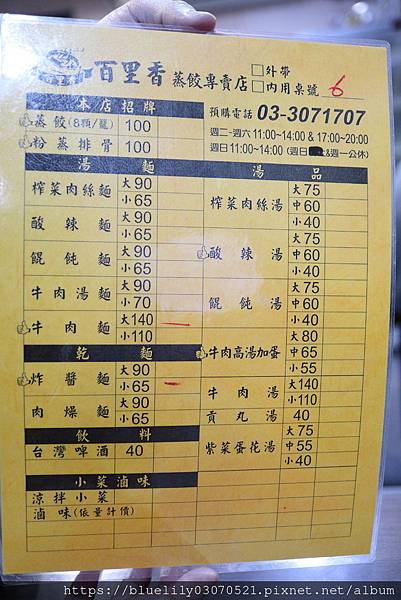 百里香 蒸餃專賣店 □外帶
□內用桌號 6
本店招牌
蒸餃(8顆/籠) 100
粉蒸排骨 100
預購電話 03-3071707
週二~週六 11:00~14:00 & 17:00~20:00
週日11:00~14:00 (週日 &週一公休)
湯麵
榨菜肉絲麵 大90
小65
酸辣麵 大90
小65
餛飩麵 大90
小65
牛肉湯麵 大90
小70
牛肉麵 大140
小110
乾麵
炸醬麵 大90
小65
肉燥麵 大90
小65
飲料
台灣啤酒 40
小菜滷味
涼拌小菜
滷味(依量計價)
湯品
榨菜肉絲湯 大75
中60
小40
酸辣湯 大75
中60
小40
餛飩湯 大75
中60
小40
牛肉高湯加蛋 大80
中65
小55
牛肉湯 大140
小110
貢丸湯 40
紫菜蛋花湯 大75
中55
小40
https://bluelily03070521.pixnet.net/album